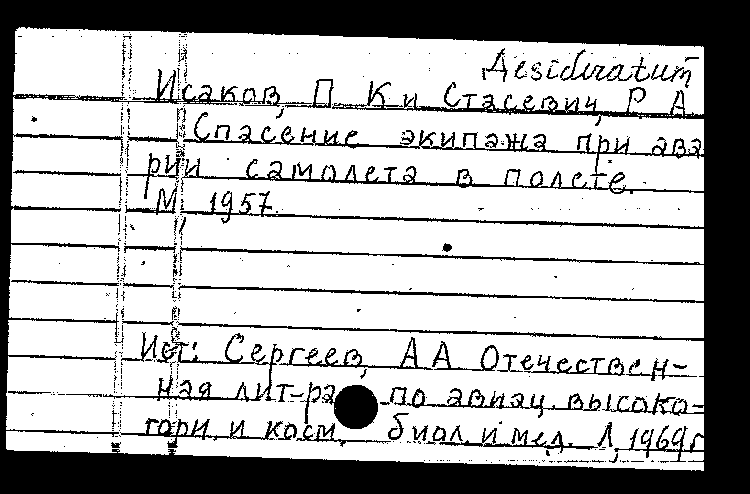 Desideratum
Исаков, П К и Стасевич, Р А
Спасение экипажа при ава
рии самолета в полете.
М, 1957.
Ист: Сергеев, А А Отечествен-
ная лит-ра по авиац. высоко-
горн. и косм. биол. и мед. Л, 1969г